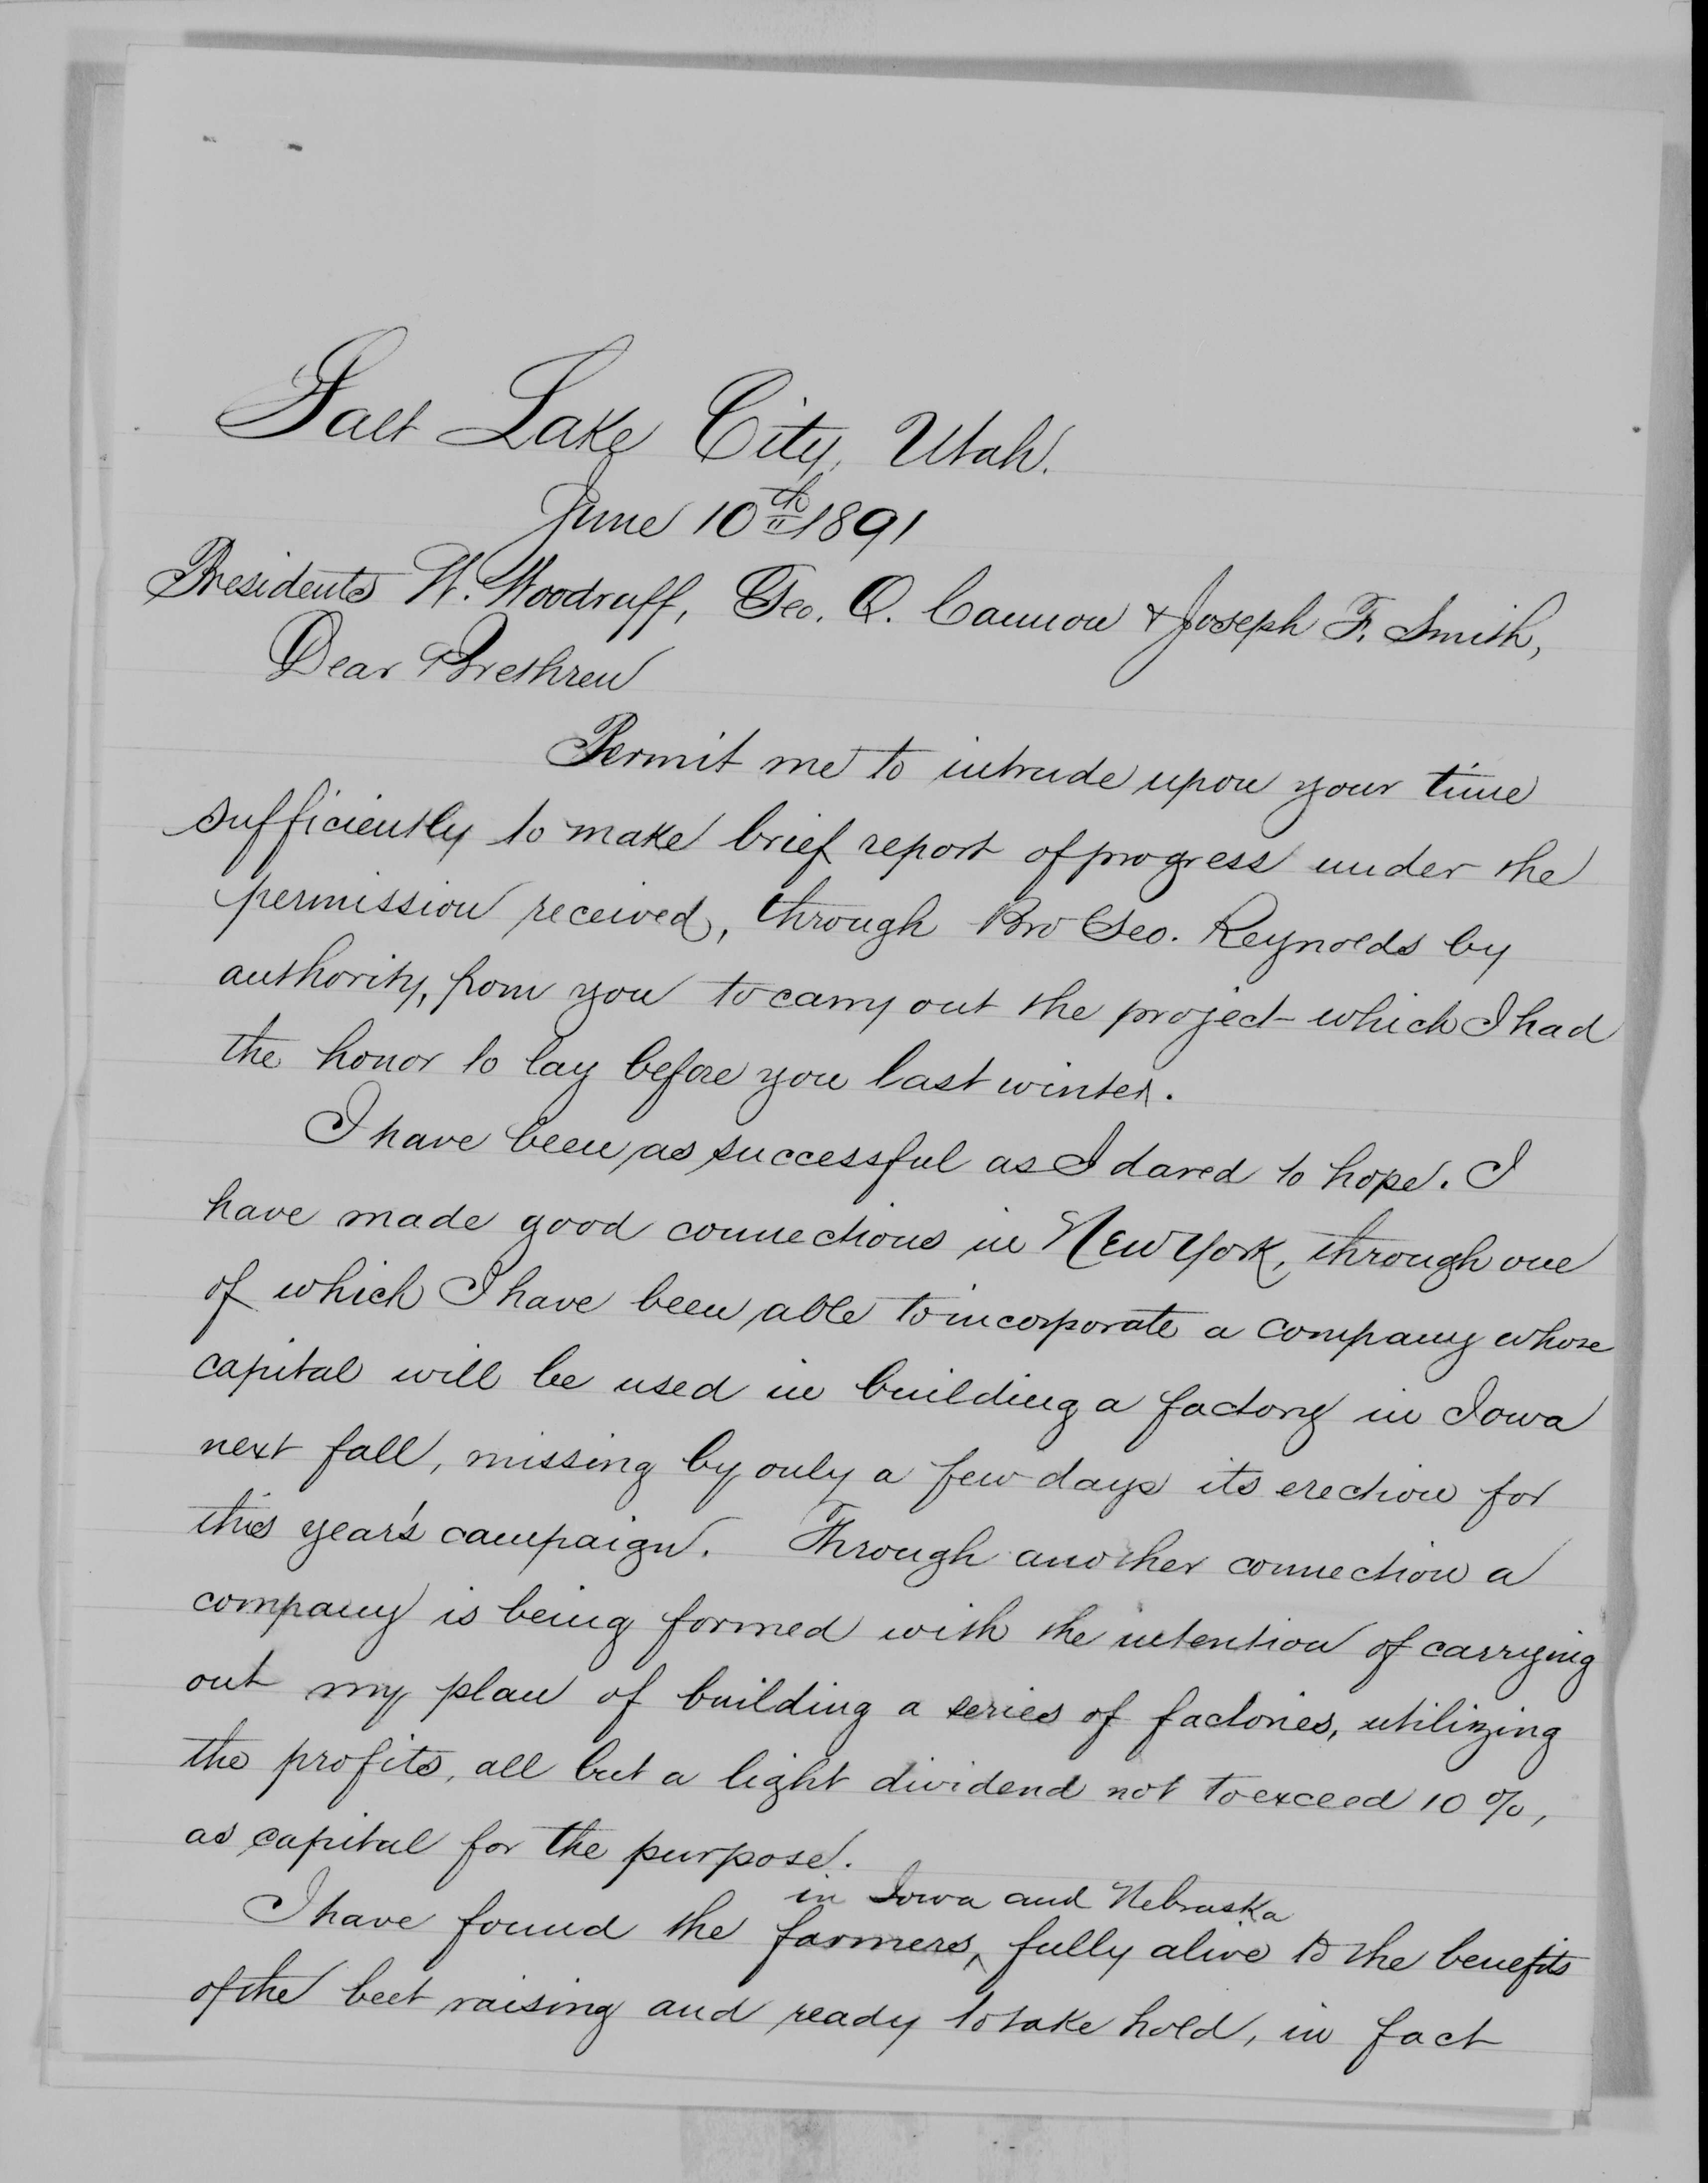 Salt Lake City, Utah.
June 10th 1891
Presidents W. Woodruff, Geo. Q. Cannon & Joseph F. Smith,
Dear Brethren
Permit me to intrude upon your time
sufficiently to make brief report of progress under the
permission received, through Bro Geo. Reynolds by
authority, from you to carry out the project which I had
the honor to lay before you last winter.
I have been as successful as I dared to hope. I
have made good connections in New York, through one
of which I have been able to incorporate a company whose
capital will be used in building a factory in Iowa
next fall, missing by only a few days its erection for
this year's campaign. Through another connection a
company is being formed with the intention of carrying
out my plan of building a series of factories, utilizing
the profits, all but a light dividend not to exceed 10 %,
as capital for the purpose.
in Iowa and Nebraska
I have found the farmers, ^ fully alive to the benefits
of the beet raising and ready to take hold, in fact